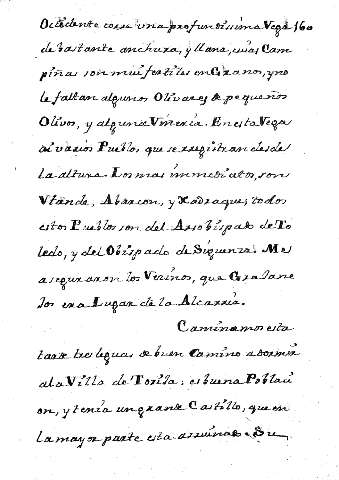 Occidente corre una profundissima Vega
de bastante anchura, y llana, cuias Cam
piñas son mui fertiles en Granos, y no
le faltan algunos Olivares de pequeños
Olivos, y alguna Vineria. En esta Vega
ai varios Pueblos que se registran desde
la altura. Los mas inmediatos, son
Utande, y Xadraque; todos
estos Pueblos son del Arzobispado de To
ledo, y del Obispado de Siguenza. Me
aseguraron los Vecinos, que Gralane
jos era Lugar de la Alcarria.
Caminamos esta
tarde tres leguas de buen Camino a dormir
a la Villa de Torija: es buena Poblaci
on, y tenia un grande Castillo, que en
la mayor parte esta arruinado. Su